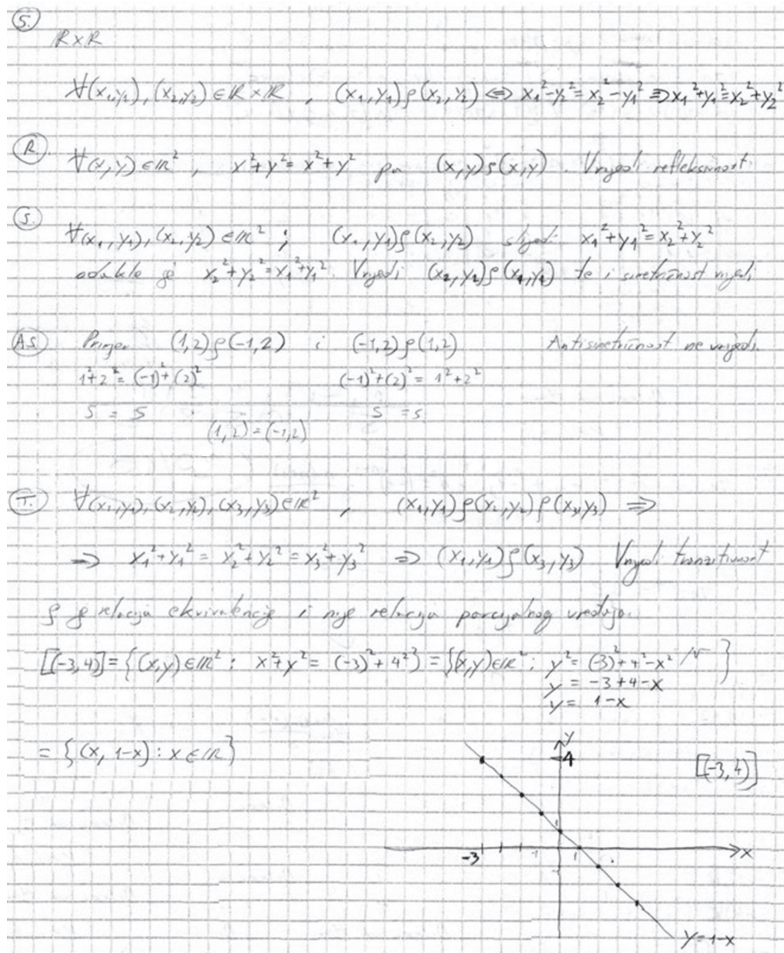 5.
R×R
∀(x₁,y₁), (x₂,y₂) ∈ R×R , (x₁,y₁) ρ (x₂,y₂) ⇔ x₁²-y₂² = x₂²-y₁² ⇒ x₁²+y₁² = x₂²+y₂²
R. ∀(x,y) ∈ R², x²+y² = x²+y² pa (x,y) ρ (x,y). Vrijedi refleksivnost.
S. ∀(x₁,y₁), (x₂,y₂) ∈ R² ; (x₁,y₁) ρ (x₂,y₂) slijedi x₁²+y₁² = x₂²+y₂²
odakle je x₂²+y₂² = x₁²+y₁². Vrijedi (x₂,y₂) ρ (x₁,y₁) te i simetričnost vrijedi
AS. Primjer (1,2) ρ (-1,2) i (-1,2) ρ (1,2) Antisimetričnost ne vrijedi.
1²+2² = (-1)²+(2)² (-1)²+(2)² = 1²+2²
5 = 5 5 = 5
(1,2) = (-1,2)
T. ∀(x₁,y₁), (x₂,y₂), (x₃,y₃) ∈ R² , (x₁,y₁) ρ (x₂,y₂) ρ (x₃,y₃) ⇒
⇒ x₁²+y₁² = x₂²+y₂² = x₃²+y₃² ⇒ (x₁,y₁) ρ (x₃,y₃) Vrijedi tranzitivnost
ρ je relacija ekvivalencije i nije relacija parcijalnog uređaja.
[(-3,4)] = {(x,y) ∈ R² : x²+y² = (-3)²+4²} = {(x,y) ∈ R² ; y² = (-3)²+4²-x² /√ }
y = -3+4-x
y = 1-x
= {(x, 1-x) : x ∈ R}
y
4
[(-3,4)]
-3
-1
1
1
x
y=1-x